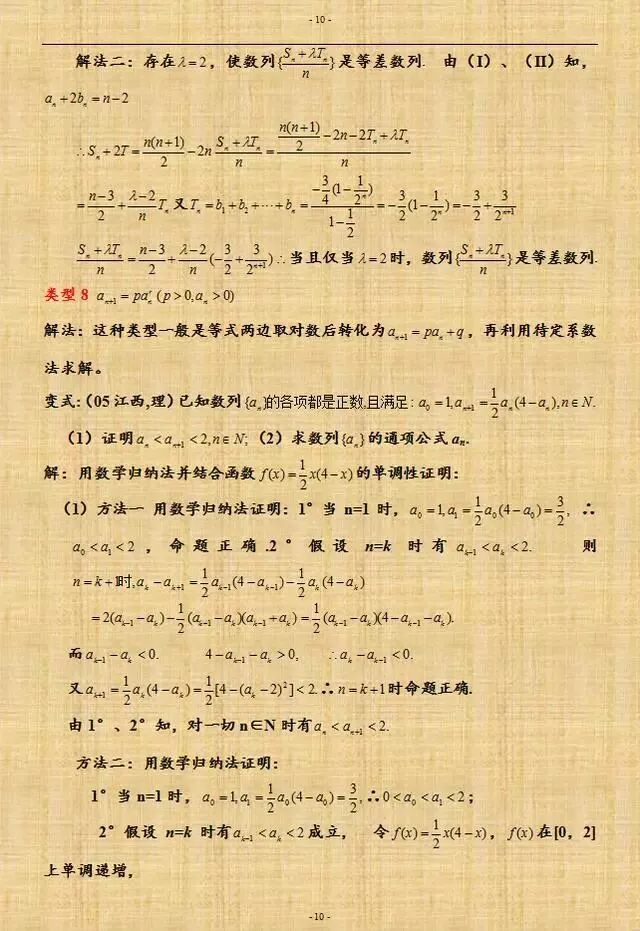 - 10 -
解法二：存在λ=2，使数列{\frac{S_n+λT_n}{n}}是等差数列. 由（I）、（II）知，
a_n+2b_n=n-2
∴S_n+2T=\frac{n(n+1)}{2}-2n \frac{S_n+λT_n}{n}=\frac{\frac{n(n+1)}{2}-2n-2T_n+λT_n}{n}
=\frac{n-3}{2}+\frac{λ-2}{n}T_n 又T_n=b_1+b_2+⋯+b_n=\frac{-\frac{3}{4}(1-\frac{1}{2^n})}{1-\frac{1}{2}}=-\frac{3}{2}(1-\frac{1}{2^n})=-\frac{3}{2}+\frac{3}{2^{n+1}}
\frac{S_n+λT_n}{n}=\frac{n-3}{2}+\frac{λ-2}{n}(-\frac{3}{2}+\frac{3}{2^{n+1}})∴当且仅当λ=2时，数列{\frac{S_n+λT_n}{n}}是等差数列.
类型8 a_{n+1}=pa_n^r(p>0,a_n>0)
解法：这种类型一般是等式两边取对数后转化为a_{n+1}=pa_n+q，再利用待定系数
法求解。
变式：（05江西,理）已知数列{a_n}的各项都是正数,且满足：a_0=1,a_{n+1}=\frac{1}{2}a_n(4-a_n),n∈N.
（1）证明a_n<a_{n+1}<2,n∈N;（2）求数列{a_n}的通项公式a_n.
解：用数学归纳法并结合函数f(x)=\frac{1}{2}x(4-x)的单调性证明：
（1）方法一 用数学归纳法证明：1°当n=1时，a_0=1,a_1=\frac{1}{2}a_0(4-a_0)=\frac{3}{2}, ∴
a_0<a_1<2，命题正确.2°假设n=k时有a_{k-1}<a_k<2. 则
n=k+1时,a_k-a_{k+1}=\frac{1}{2}a_{k-1}(4-a_{k-1})-\frac{1}{2}a_k(4-a_k)
=2(a_{k-1}-a_k)-\frac{1}{2}(a_{k-1}-a_k)(a_{k-1}+a_k)=\frac{1}{2}(a_{k-1}-a_k)(4-a_{k-1}-a_k).
而a_{k-1}-a_k<0. 4-a_{k-1}-a_k>0, ∴a_k-a_{k-1}<0.
又a_{k+1}=\frac{1}{2}a_k(4-a_k)=\frac{1}{2}[4-(a_k-2)^2]<2.∴n=k+1时命题正确.
由1°、2°知，对一切n∈N时有a_n<a_{n+1}<2.
方法二：用数学归纳法证明：
1°当n=1时，a_0=1,a_1=\frac{1}{2}a_0(4-a_0)=\frac{3}{2},∴0<a_0<a_1<2；
2°假设n=k时有a_{k-1}<a_k<2成立， 令f(x)=\frac{1}{2}x(4-x)，f(x)在[0，2]
上单调递增，
- 10 -